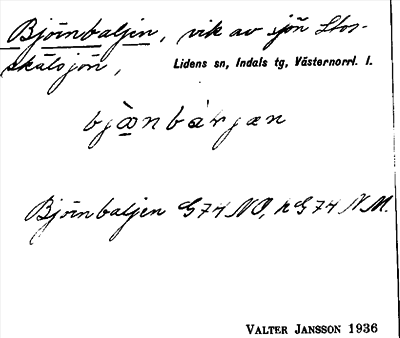 Björnbaljen, vik av sjön Stor-
skälsjön,
Lidens sn, Indals tg, Västernorrl. l.
Björnbaljen G74 NO, k G74 N M.
VALTER JANSSON 1936